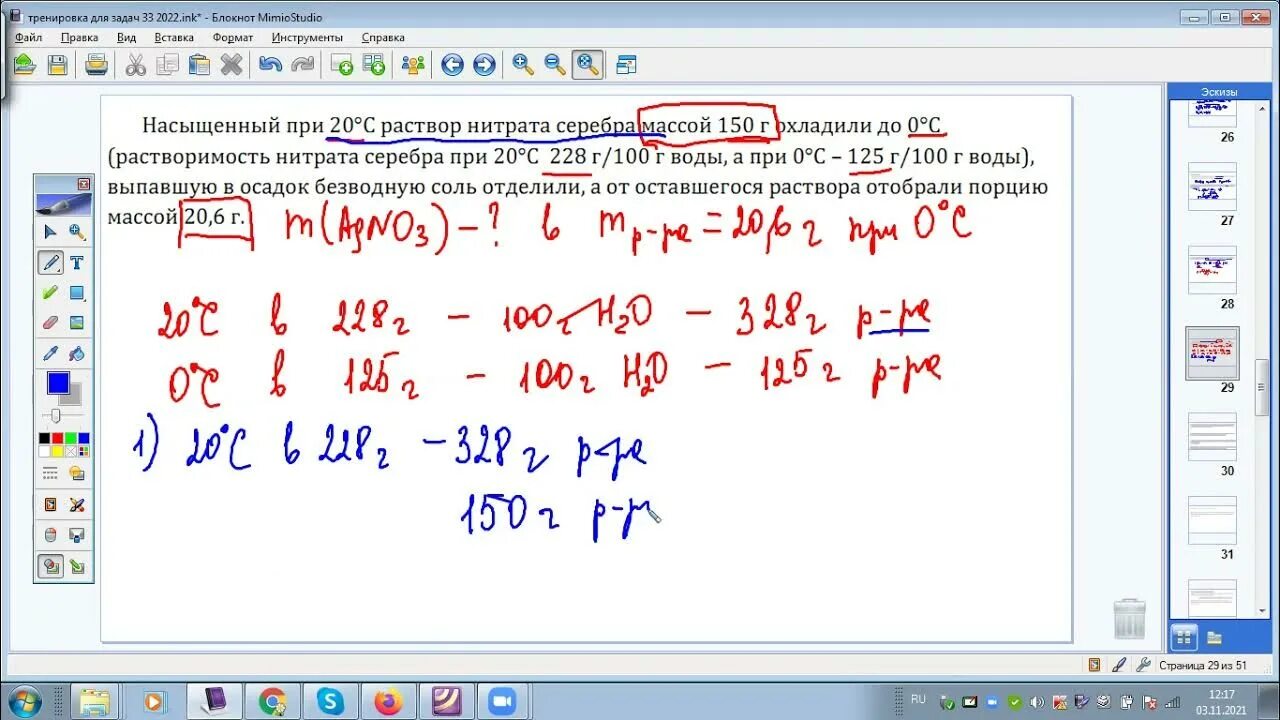 тренировка для задач 33 2022.ink* - Блокнот MimioStudio
Файл Правка Вид Вставка Формат Инструменты Справка
Эскизы
Насыщенный при 20°C раствор нитрата серебра массой 150 г охладили до 0°C
(растворимость нитрата серебра при 20°C 228 г/100 г воды, а при 0°C – 125 г/100 г воды),
выпавшую в осадок безводную соль отделили, а от оставшегося раствора отобрали порцию
массой 20,6 г.
m(AgNO3) - ? в m р-ра = 20,6 г при 0°C
20°C в 228г - 100г H2O - 328г р-ра
0°C в 125г - 100г H2O - 125г р-ра
1) 20°C в 228г - 328г р-ра
150г р-р
26
27
28
29
30
31
T
Страница 29 из 51
RU
12:17
03.11.2021